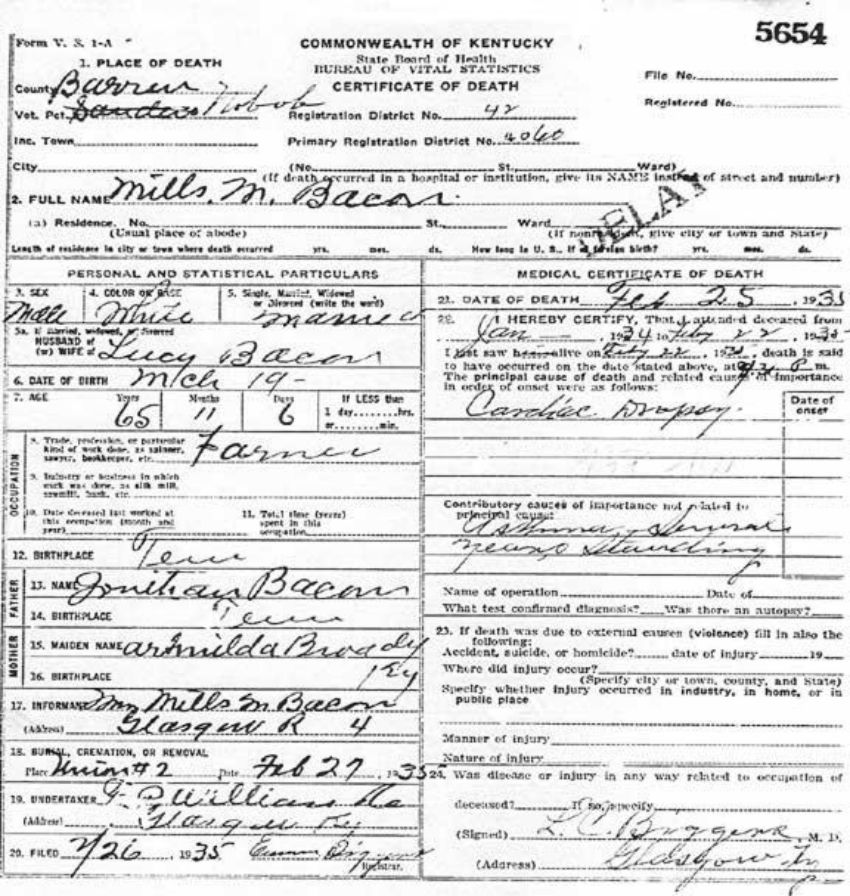 5654
Form V. S. 1-A
COMMONWEALTH OF KENTUCKY
State Board of Health
BUREAU OF VITAL STATISTICS
CERTIFICATE OF DEATH
File No.
Registered No.
1. PLACE OF DEATH
County Barren
Vot. Pct. Nobob
Registration District No. 42
Inc. Town
Primary Registration District No. 4060
City (No. St. Ward)
(If death occurred in a hospital or institution, give its NAME instead of street and number)
2. FULL NAME Mills. M. Bacon.
DELAY
(a) Residence. No. St. Ward
(Usual place of abode) (If nonresident, give city or town and State)
Length of residence in city or town where death occurred yrs. mos. ds. How long in U. S., if of foreign birth? yrs. mos. ds.
PERSONAL AND STATISTICAL PARTICULARS
3. SEX 4. COLOR OR RACE 5. Single, Married, Widowed
or Divorced (write the word)
Male White Married
5a. If married, widowed, or divorced
HUSBAND of
(or) WIFE of Lucy Bacon
6. DATE OF BIRTH Mch 19-
7. AGE Years Months Days If LESS than
65 11 6 1 day, hrs.
or min.
OCCUPATION
8. Trade, profession, or particular
kind of work done, as spinner,
sawyer, bookkeeper, etc. Farmer
9. Industry or business in which
work was done, as silk mill,
sawmill, bank, etc.
10. Date deceased last worked at
this occupation (month and
year)
11. Total time (years)
spent in this
occupation
12. BIRTHPLACE Tenn
FATHER
13. NAME Jonithan Bacon
14. BIRTHPLACE Tenn
MOTHER
15. MAIDEN NAME Armilda Broady
16. BIRTHPLACE Ky
17. INFORMANT Mrs Mills M Bacon
(Address) Glasgow R 4
18. BURIAL, CREMATION, OR REMOVAL
Place Union #2 Date Feb 27, 1935
19. UNDERTAKER
(Address) Glasgow Ky
20. FILED 2/26 1935
Registrar.
MEDICAL CERTIFICATE OF DEATH
21. DATE OF DEATH Feb 25, 1935
22. I HEREBY CERTIFY, That I attended deceased from
Jan, 1934 to Feby 22, 1935
I last saw alive on Feby 22, 19 death is said
to have occurred on the date stated above, at m.
The principal cause of death and related causes of importance
in order of onset were as follows:
Date of
onset
Cardiac Dropsy.
Contributory causes of importance not related to
principal cause:
Asthma, Several
Years Standing
Name of operation Date of
What test confirmed diagnosis? Was there an autopsy?
23. If death was due to external causes (violence) fill in also the
following:
Accident, suicide, or homicide? date of injury 19
Where did injury occur?
(Specify city or town, county, and State)
Specify whether injury occurred in industry, in home, or in
public place
Manner of injury
Nature of injury
24. Was disease or injury in any way related to occupation of
deceased? If so, specify
(Signed) M. D.
(Address) Glasgow Ky